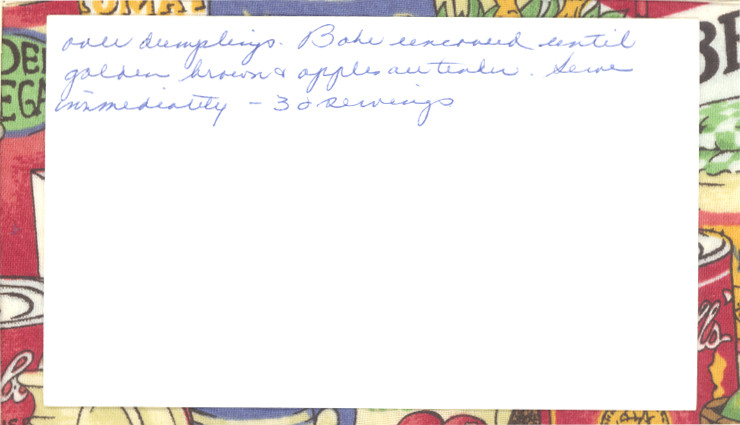 TOMAT
DEL
EGA
BE
over dumplings. Bake uncovered until
golden brown & apples are tender. Serve
immediately - 30 servings
lls'